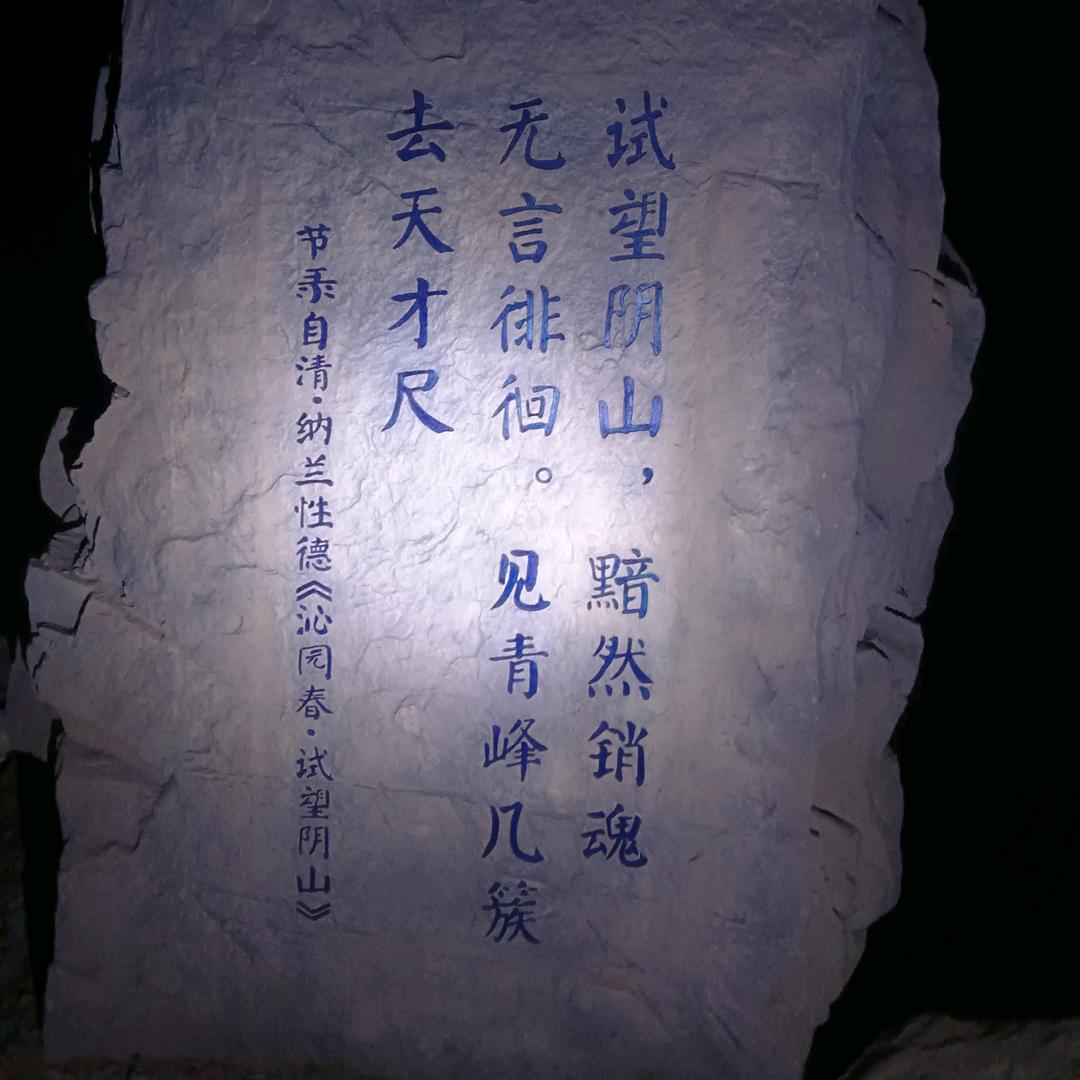 试望阴山，黯然销魂
无言徘徊。见青峰几簇
去天才尺
节录自清·纳兰性德《沁园春·试望阴山》